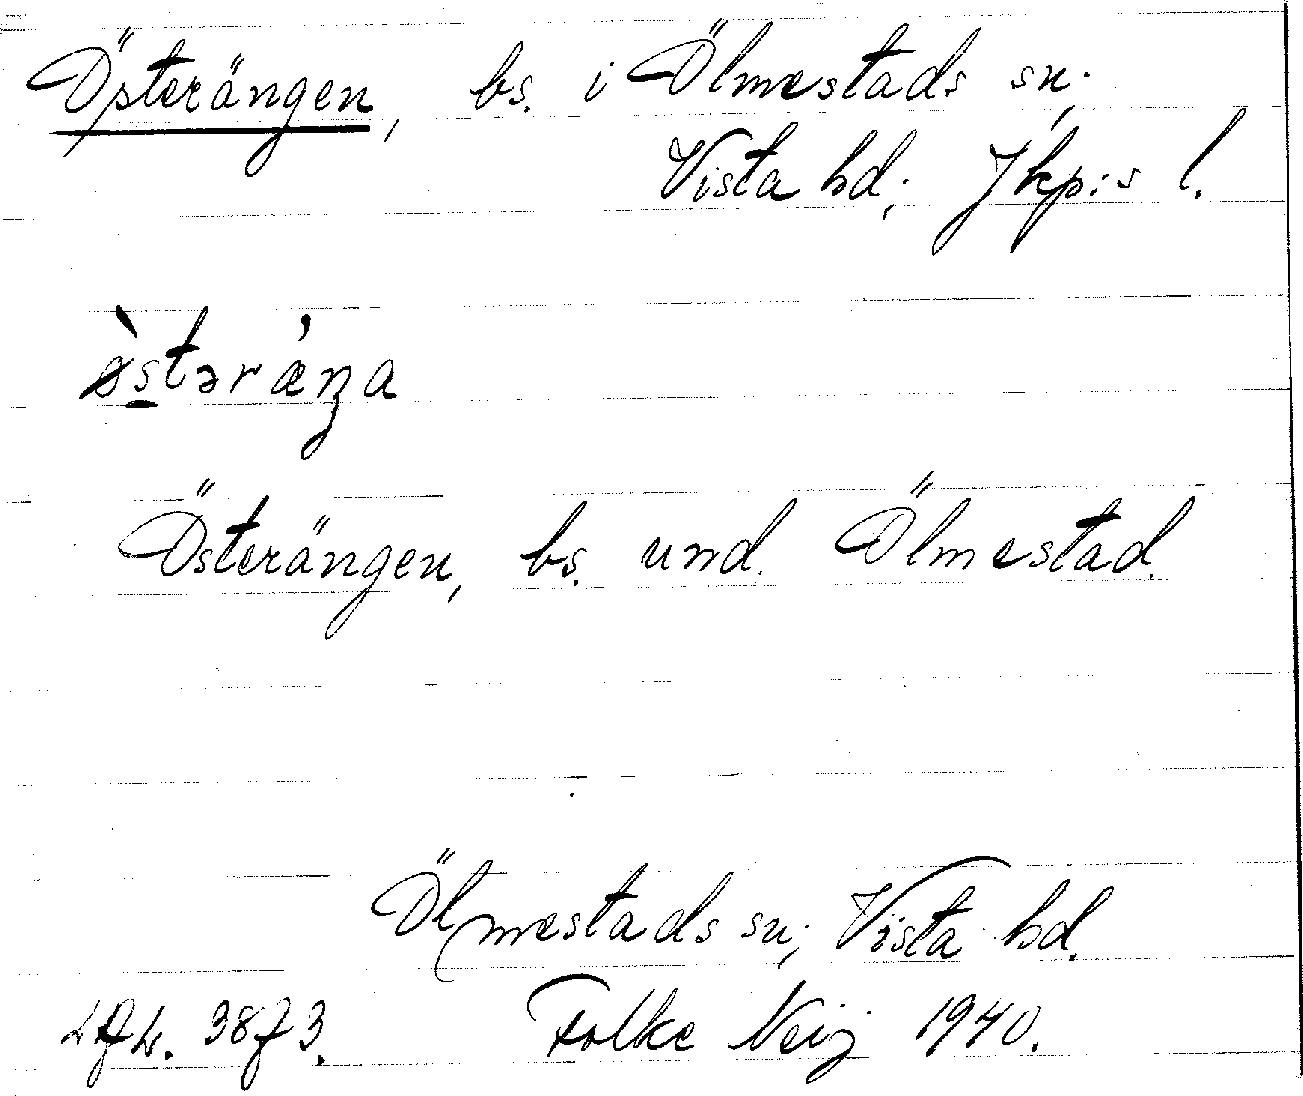 Österängen, bs. i Ölmestads sn;
Vista hd; Jkp:s l.
ø̀stərǽŋa
Österängen, bs. und. Ölmestad.
Ölmestads sn; Vista hd.
Folke Neij 1940.